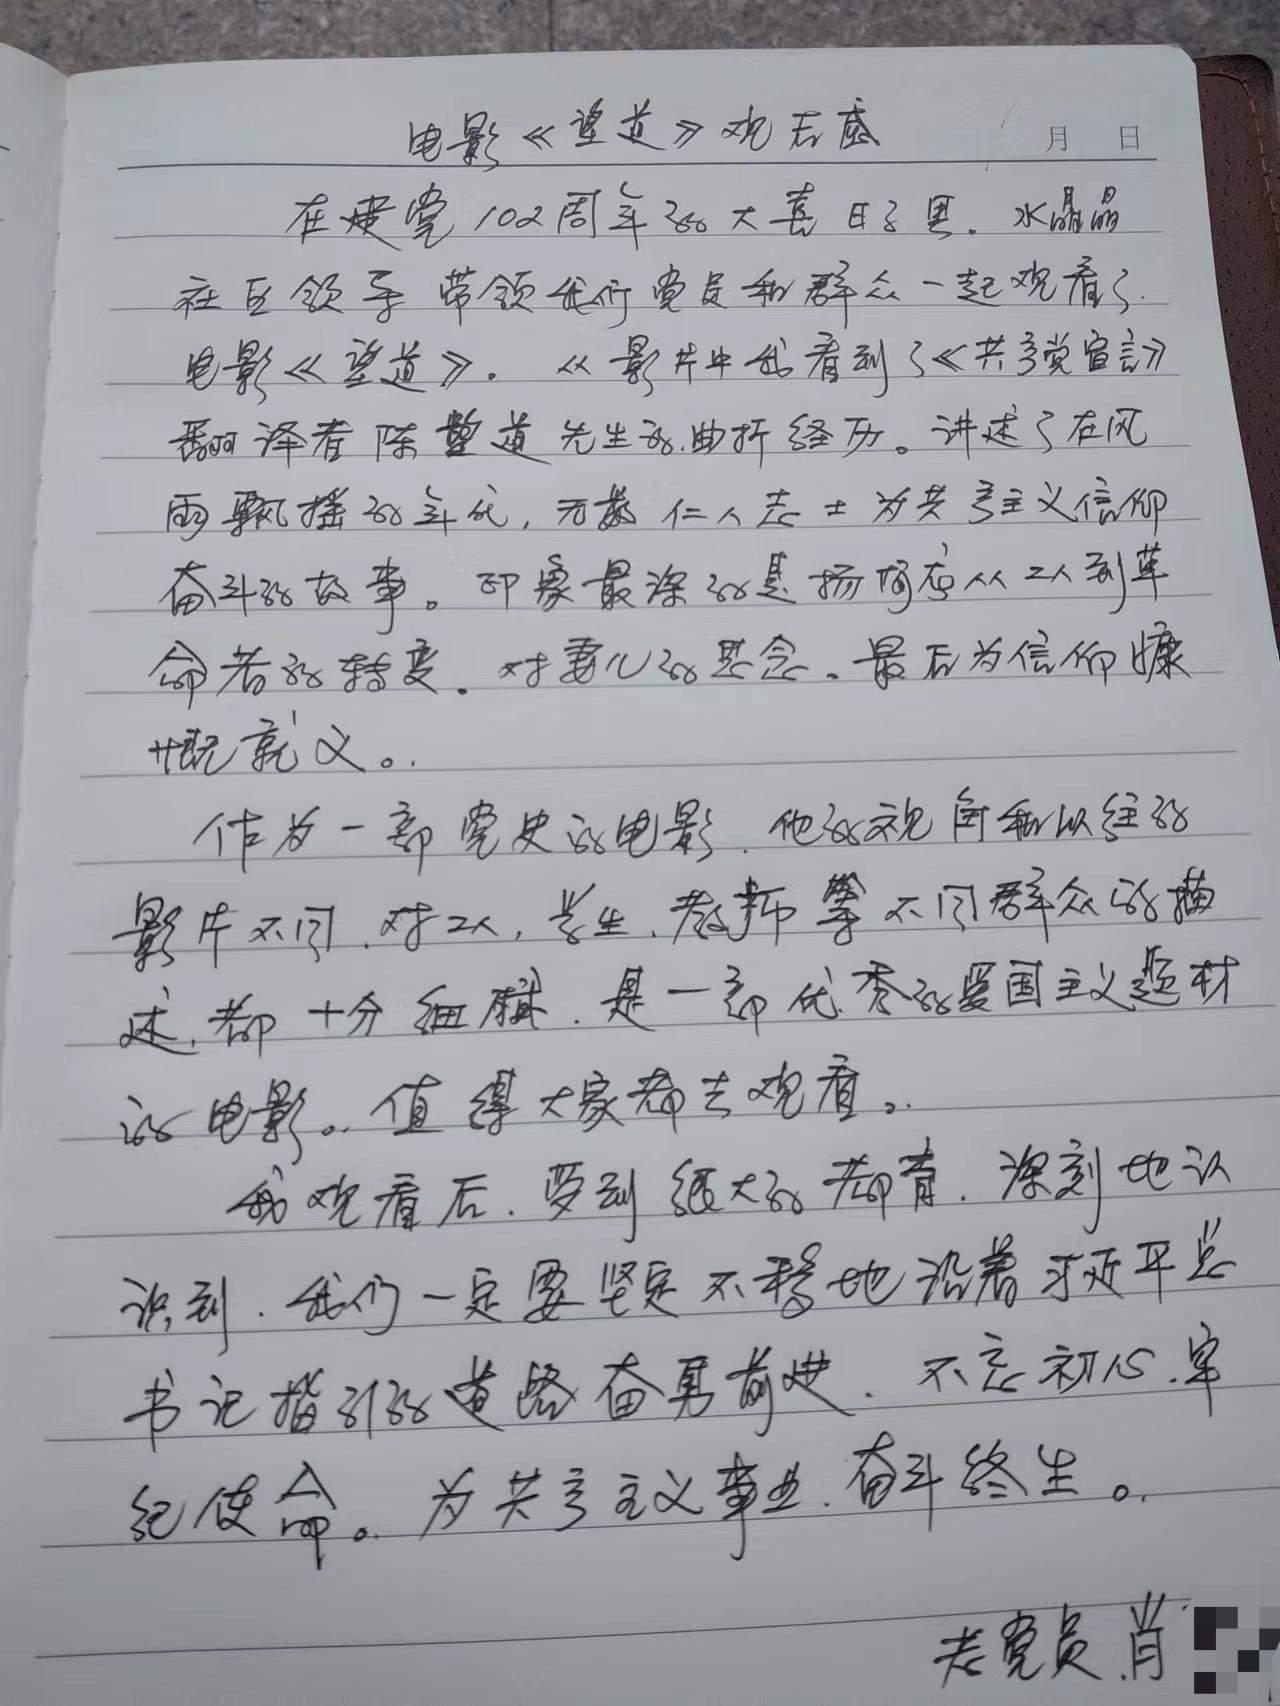 电影《望道》观后感
月 日
在建党102周年的大喜日子里. 水晶晶
社区领导带领我们党员和群众一起观看了
电影《望道》. 从影片中我看到了《共产党宣言》
翻译者陈望道先生的曲折经历。讲述了在风
雨飘摇的年代, 无数仁人志士为共产主义信仰
奋斗的故事。印象最深的是杨阿应从工人到革
命者的转变. 对妻儿的思念。最后为信仰慷
慨就义。
作为一部党史的电影. 他的视角和以往的
影片不同. 对工人, 学生, 教师等不同群众的描
述, 都十分细腻. 是一部优秀的爱国主义题材
的电影。值得大家都去观看。
我观看后. 受到极大的教育. 深刻地认
识到. 我们一定要坚定不移地沿着习近平总
书记指引的道路奋勇前进. 不忘初心. 牢
纪使命。为共产主义事业. 奋斗终生。
老党员 肖